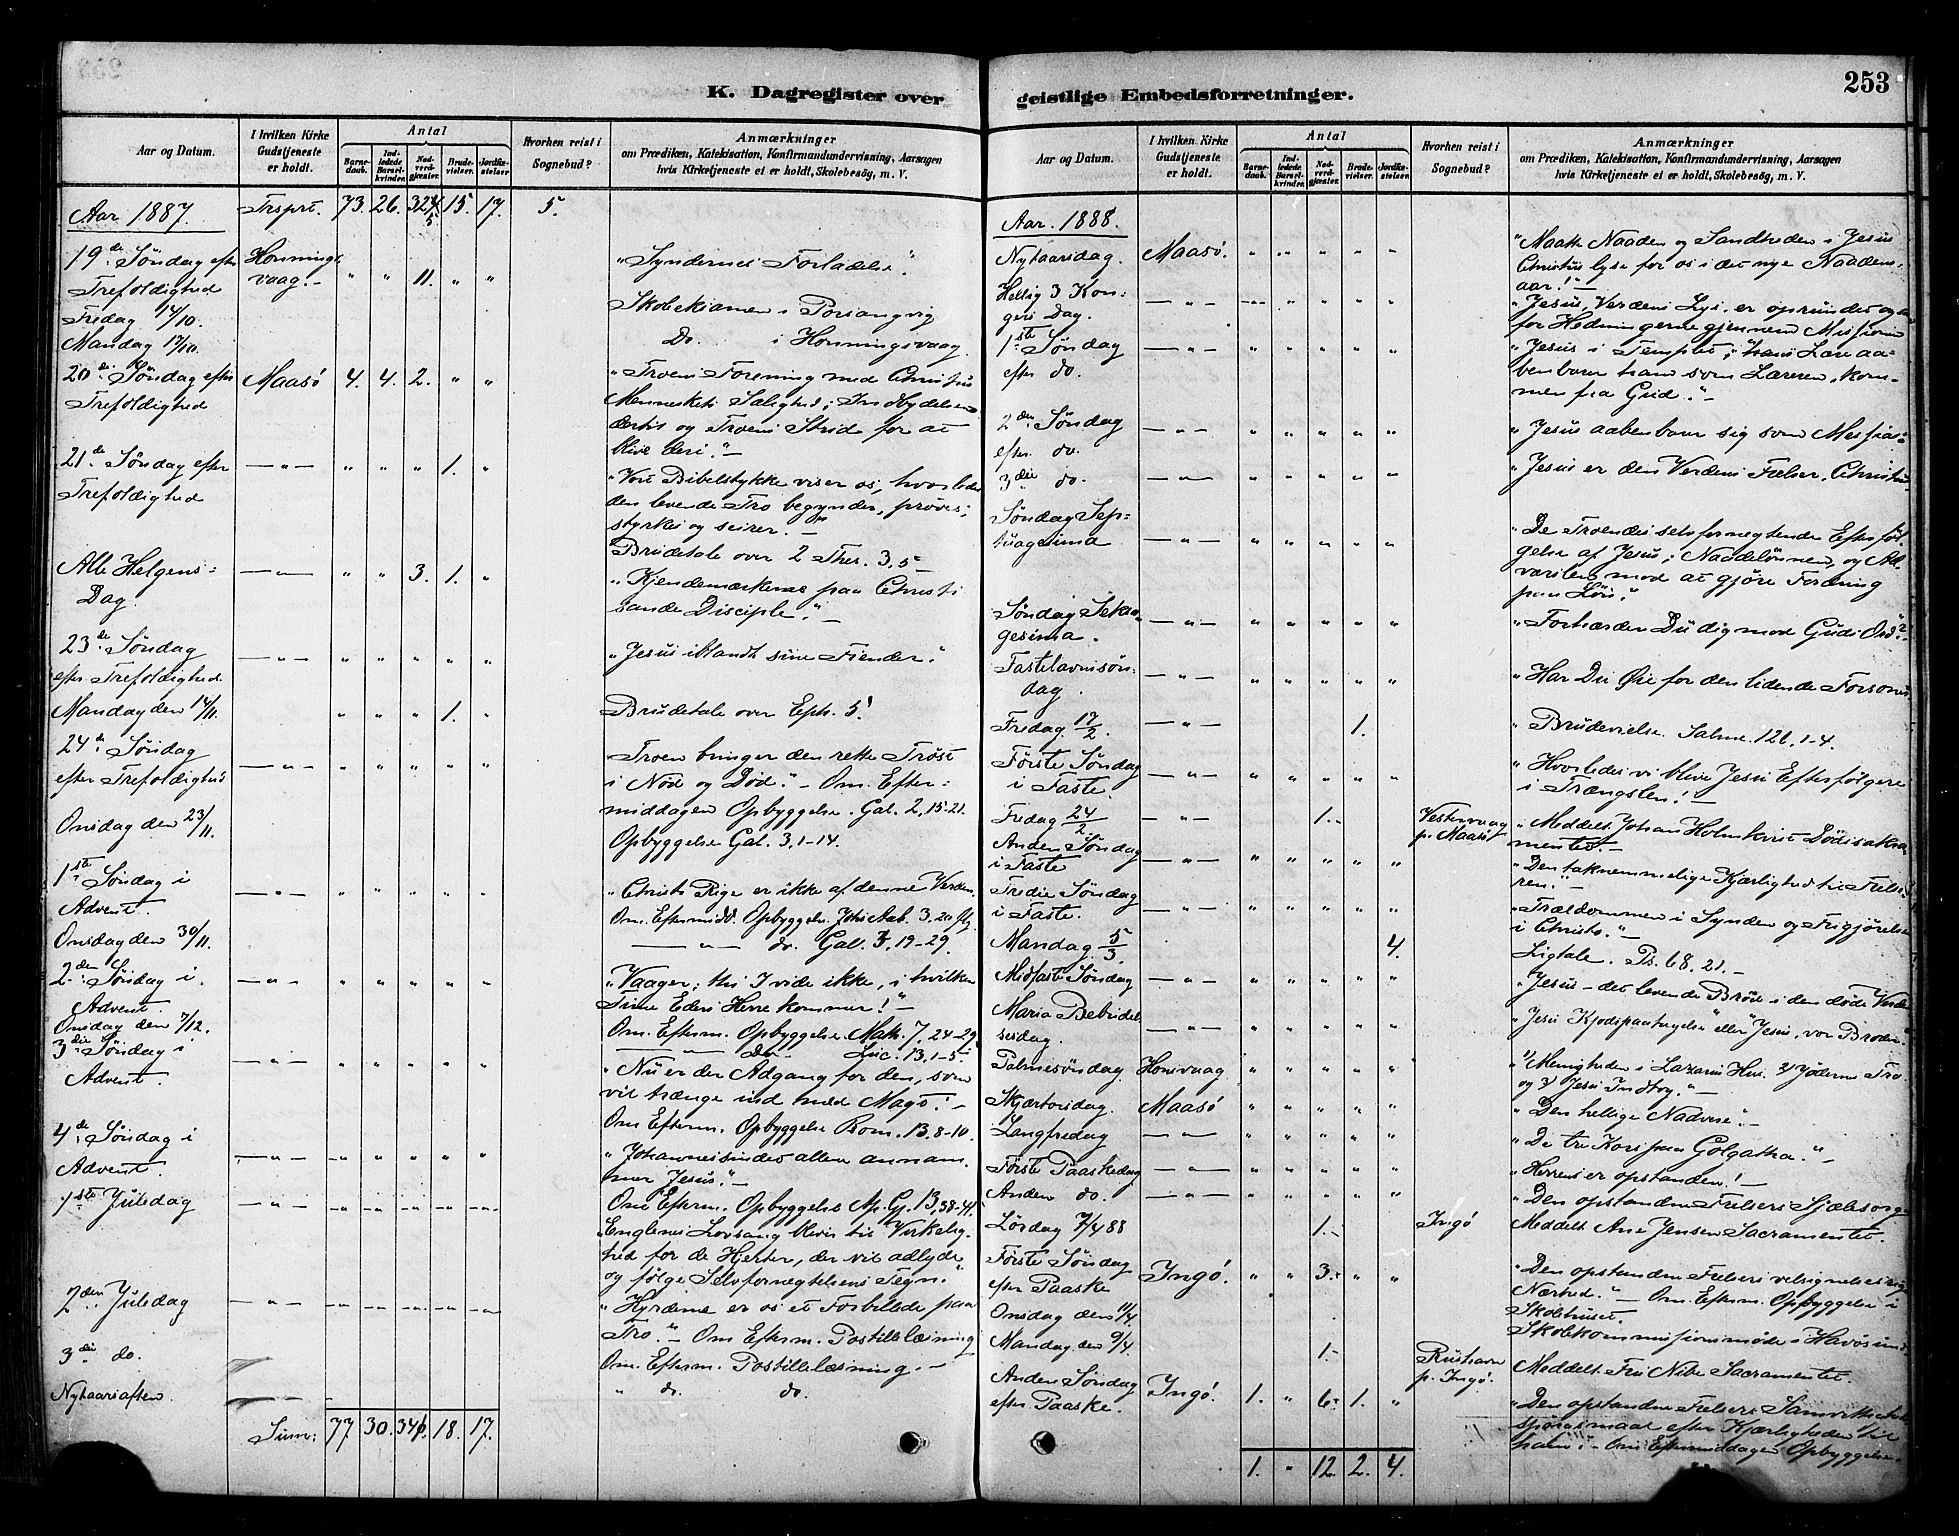 253
K. Dagregister over
geistlige Embedsforretninger.
Aar og Datum.
I hvilken Kirke Gudstjeneste er holdt.
Antal
Barne-daab.
Ind-ledede Barsel-kvinder.
Nad-verd-gjester.
Brude-vielser.
Jordfæ-stelser
Hvorhen reist i Sognebud?
Anmærkninger
om Prædiken, Katekisation, Konfirmandundervisning, Aarsagen
hvis Kirketjeneste ei er holdt, Skolebesøg, m. V.
Aar 1887. Trsprt. 73. 26. 5. 15. 17. 5.
19de Søndag efter Honnings-
Trefoldighed vaag. „ „ 11. „ „ „Syndernes Forladelse."
Fredag 14/10. Skoleexamen i Porsangvig
Mandag 17/10. Do. i Honningsvaag.
20de Søndag efter Maasø 4. 4. 2. „ „ „Troens Forening med Christus
Trefoldighed Menneskets Salighed; Indbydelsen
dertil og Troens Strid for at
blive deri."-
21de Søndag efter — „ — „ „ „ 1. „ „Vort Bibelstykke viser os, hvorledes
Trefoldighed den levende Tro begynder, prøves,
styrkes og seirer."-
Brudetale over 2 Thes. 3,5-
Alle Helgens- — „ — „ „ 3. 1. „ „Kjendemærkerne paa Christi
Dag. sande Disciple."-
23de Søndag — „ — „ „ „ „ „ „Jesus iblandt sine Fiender."
efter Trefoldighed
Mandag den 14/11. „ „ „ 1. „ Brudetale over Eph. 5.
24de Søndag Troen bringer den rette Trøst
efter Trefoldighed — „ — „ „ „ „ „ i Nød og Død."- Om Efter-
middagen Opbyggelse. Gal. 2,15-21.
Onsdag den 23/11. Opbyggelse Gal. 3,1-14.
1ste Søndag i — „ — „ „ „ „ „ „Christi Rige er ikke af denne Verden.
Advent. Om Eftermidd. Opbyggelse. Johs Aab. 3.20 flg.
Onsdag den 30/11. — „ — do. Gal. 3,19-29.
2den Søndag i — „ — „ „ „ „ „ „Vaager; thi I vide ikke, i hvilken
Advent. Time Eders Herre kommer!"
Onsdag den 7/12. Om Efterm. Opbyggelse Math. 7,24-29
3die Søndag i — „ — do- Luc. 13,1-5
Advent. — „ — „ „ „ „ „ „Nu er der Adgang for den, som
vil trænge ind med Magt."-
Om Efterm. Opbyggelse Rom. 13,8-10.
4de Søndag i
Advent. — „ — „ „ „ „ „ „Johannessindet alene annam-
mer Jesus."-
1ste Juledag — „ — „ „ „ „ „ Om Efterm. Opbyggelse Ap. Gj. 13,38-41.
Englenes Lovsang bliver til Virkelig-
hed for de Hjerter, der vil adlyde
og følge Selvfornegtelsens Tegn."
2den Juledag — „ — „ „ „ „ „ „Hyrderne er os et Forbillede paa
Tro."- Om Efterm. Postillelæsning
3die do. Om Efterm. Postillelæsning.-
Nytaarsaften. „ do. do.
Sum: 77 30. 18. 17.
Aar og Datum.
I hvilken Kirke Gudstjeneste er holdt.
Antal
Barne-daab.
Ind-ledede Barsel-kvinder.
Nad-verd-gjester.
Brude-vielser.
Jordfæ-stelser
Hvorhen reist i Sognebud?
Anmærkninger
om Prædiken, Katekisation, Konfirmandundervisning, Aarsagen
hvis Kirketjeneste ei er holdt, Skolebesøg, m. V.
Aar 1888.
Nytaarsdag. Maasø. „ „ „ „ „ „Maatte Naaden og Sandheden i Jesus
Christus lyse for os i det nye Naadens-
aar!"-
Hellig 3 Kon- — „ — „ „ „ „ „ „Jesus, Verdens Lys, er oprundet ogsaa
gers Dag. for Hedningerne gjennem Missionen
1ste Søndag — „ — „ „ „ „ „ „Jesus i Templet; hans Lære aa-
efter do. benbarer ham som Læreren, kom-
men fra Gud."-
2den Søndag — „ — „ „ „ „ „ „Jesus aabenbarer sig som Messias
efter do.
3die do. — „ — „ „ „ „ „ „Jesus er den Verdens Frelser, Christus
Søndag Sep-
tuagesima — „ — „ „ „ „ „ „De Troendes selvfornegtende Efterføl-
gelse af Jesus; Naadelønnen, og Ad-
varslen mod at gjøre Fordring
paa Løn."
Søndag Seksa-
gesima. — „ — „ „ „ „ „ „Forhærder Du dig mod Guds Ord?"-
Fastelavnssøn-
dag. — „ — „ „ „ „ „ „Har Du Øie for den lidende Forsoner
Fredag 17/2. — „ — 1. „Brudevielse. Salme. 128,1-4.
Første Søndag
i Faste. — „ — „ „ „ „ „ „Hvorledes vi blive Jesu Efterfølgere
i Trængslen!-
Fredag 24/2. — „ — 1.- Vestervaag p. Maasø „Meddelt Johan Holmkvist Dødssakra-
mentet.-
Anden Søndag
i Faste — „ — „ „ „ „ „ „Den taknemmelige Kjærlighed til Frelse-
ren."-
Tredie Søndag
i Faste. — „ — „ „ „ „ „ „Trældommen i Synden og Frigjørelse
i Christo."-
Mandag 5/3. 4. Ligtale. Ps. 68.21.-
Midfaste Søndag — „ — „ „ „ „ „ „Jesus - det levende Brød i den døde Verden
Maria Bebudel-
sesdag. — „ — „ „ „ „ „ „Jesu Kjødspaatagelse" eller „Jesus, vor Broder.
Palmesøndag. Honsvaag „ „ „ „ „ 1/ Menigheden i Lazarus Hus. 2/ Jødernes Tro.
og 3/ Jesu Indtog."-
Skjærtorsdag. Maasø „ „ „ „ „ „Den hellige Nadvere."-
Langfredag — „ — „ „ „ „ „ „De tre Kors paa Golgatha."-
Første Paaskedag — „ — „ „ „ „ „ „Herren er opstanden!-
Anden do. — „ — „ „ „ „ „ „Den opstandne Frelsers Sjælesorg
Lørdag 7/4 88 1.- Ingø Meddelt Ane Jensen Sacramentet.
Første Søndag
efter Paaske Ingø. „ „ 3.- „ „ „Den opstandne Frelsers velsignelsesrige
Nærhed."- Om Efterm. Opbyggelse i
Skolehuset.
Onsdag den 11/4 Skolekommissionsmøde i Havøsund
Mandag den 9/4 1.- Rushavn p. Ingø. Meddelt Fru Nibe Sacramentet.
Anden Søndag
efter Paaske. Ingø. 1. „ 6- 1. „ „Den opstandne Frelsers
spørgsmaal efter Kjærligheden til
ham."- Om Eftermiddagen Opbyggelse.
1. „ 12. 2. 4.